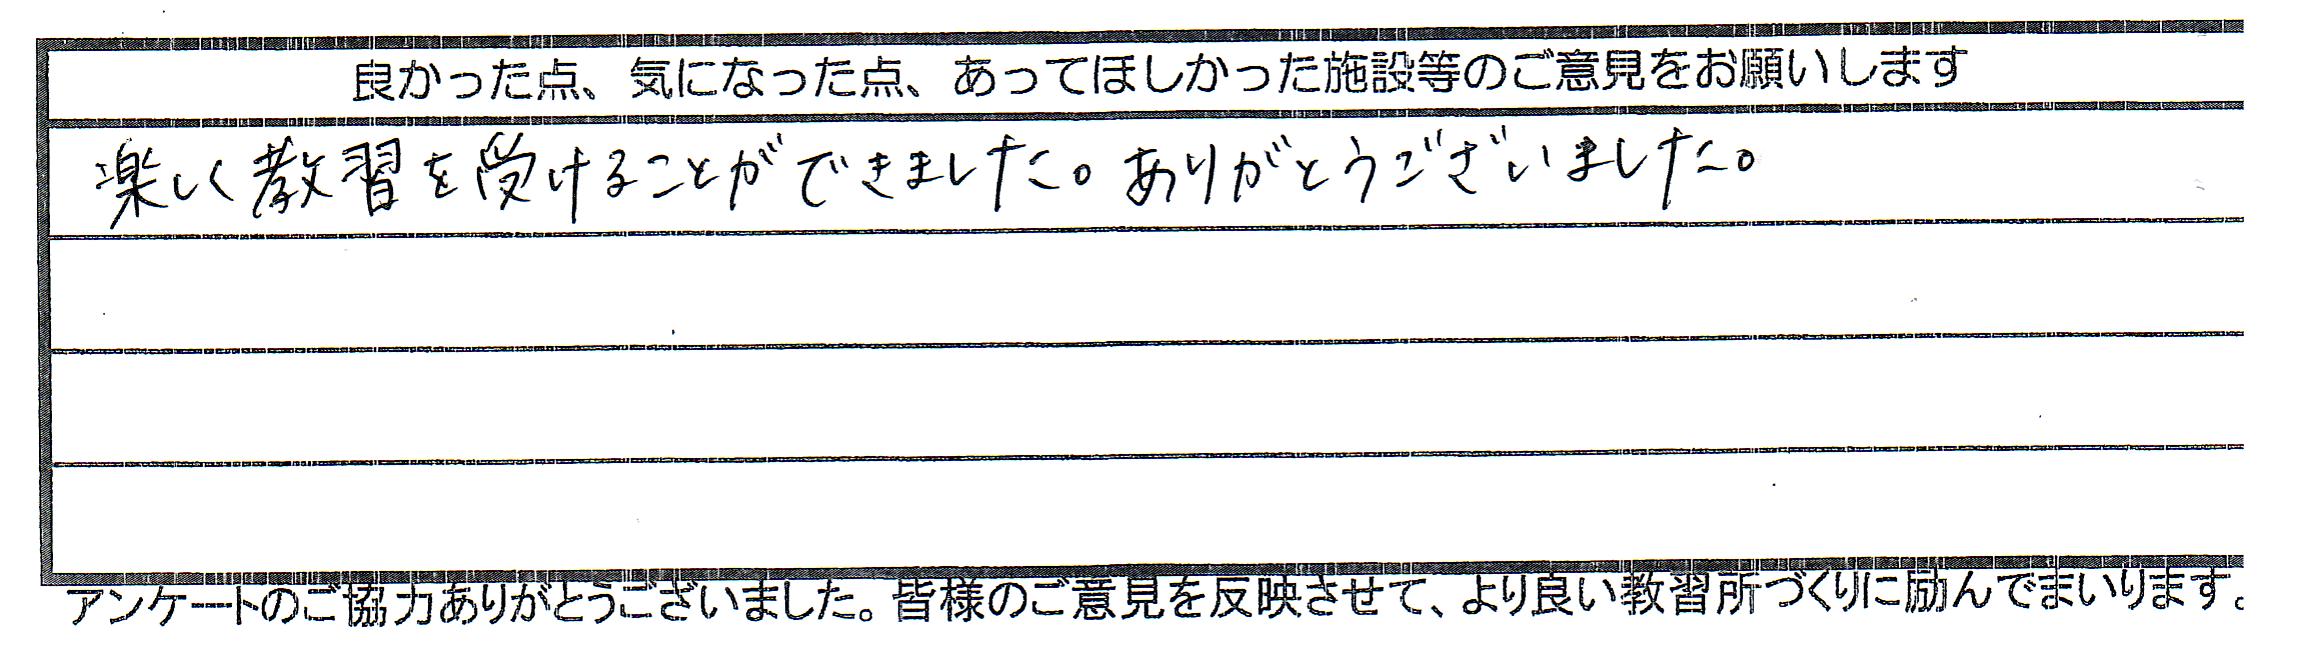 良かった点、気になった点、あってほしかった施設等のご意見をお願いします
楽しく教習を受けることができました。ありがとうございました。
アンケートのご協力ありがとうございました。皆様のご意見を反映させて、より良い教習所づくりに励んでまいります。